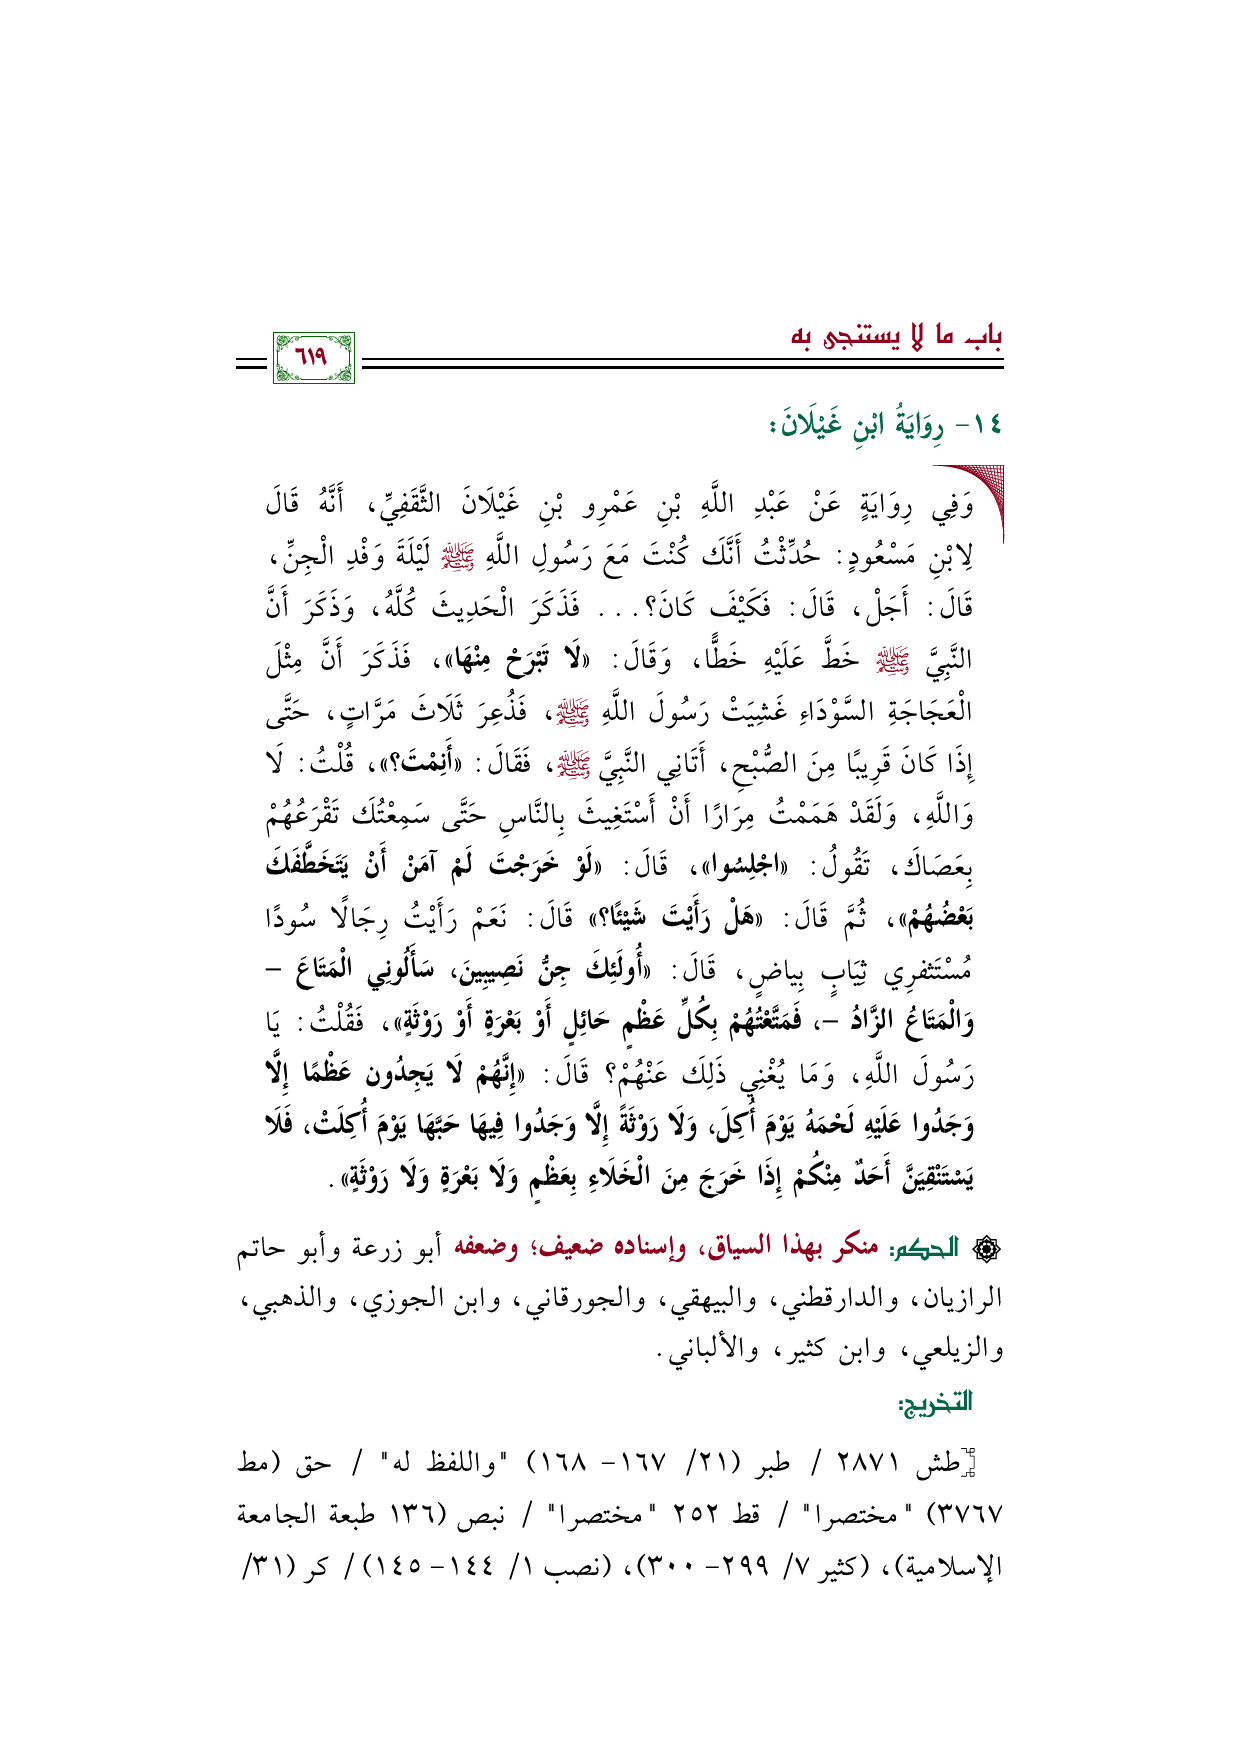 باب ما لا يستنجى به
٦١٩
١٤- رِوَايَةُ ابْنِ غَيْلَانَ:
وَفِي رِوَايَةٍ عَنْ عَبْدِ اللَّهِ بْنِ عَمْرِو بْنِ غَيْلَانَ الثَّقَفِيِّ، أَنَّهُ قَالَ
لِابْنِ مَسْعُودٍ: حُدِّثْتُ أَنَّكَ كُنْتَ مَعَ رَسُولِ اللَّهِ ﷺ لَيْلَةَ وَفْدِ الْجِنِّ،
قَالَ: أَجَلْ، قَالَ: فَكَيْفَ كَانَ؟... فَذَكَرَ الْحَدِيثَ كُلَّهُ، وَذَكَرَ أَنَّ
النَّبِيَّ ﷺ خَطَّ عَلَيْهِ خَطًّا، وَقَالَ: «لَا تَبْرَحْ مِنْهَا»، فَذَكَرَ أَنَّ مِثْلَ
الْعَجَاجَةِ السَّوْدَاءِ غَشِيَتْ رَسُولَ اللَّهِ ﷺ، فَذُعِرَ ثَلَاثَ مَرَّاتٍ، حَتَّى
إِذَا كَانَ قَرِيبًا مِنَ الصُّبْحِ، أَتَانِي النَّبِيَّ ﷺ، فَقَالَ: «أَنِمْتَ؟»، قُلْتُ: لَا
وَاللَّهِ، وَلَقَدْ هَمَمْتُ مِرَارًا أَنْ أَسْتَغِيثَ بِالنَّاسِ حَتَّى سَمِعْتُكَ تَقْرَعُهُمْ
بِعَصَاكَ، تَقُولُ: «اجْلِسُوا»، قَالَ: «لَوْ خَرَجْتَ لَمْ آمَنْ أَنْ يَتَخَطَّفَكَ
بَعْضُهُمْ»، ثُمَّ قَالَ: «هَلْ رَأَيْتَ شَيْئًا؟» قَالَ: نَعَمْ رَأَيْتُ رِجَالًا سُودًا
مُسْتَثفرِي ثِيَابٍ بِياضٍ، قَالَ: «أُولَئِكَ جِنُّ نَصِيبِينَ، سَأَلُونِي الْمَتَاعَ –
وَالْمَتَاعُ الزَّادُ –، فَمَتَّعْتُهُمْ بِكُلِّ عَظْمٍ حَائِلٍ أَوْ بَعْرَةٍ أَوْ رَوْثَةٍ»، فَقُلْتُ: يَا
رَسُولَ اللَّهِ، وَمَا يُغْنِي ذَلِكَ عَنْهُمْ؟ قَالَ: «إِنَّهُمْ لَا يَجِدُون عَظْمًا إِلَّا
وَجَدُوا عَلَيْهِ لَحْمَهُ يَوْمَ أُكِلَ، وَلَا رَوْثَةً إِلَّا وَجَدُوا فِيهَا حَبَّهَا يَوْمَ أُكِلَتْ، فَلَا
يَسْتَنْقِيَنَّ أَحَدٌ مِنْكُمْ إِذَا خَرَجَ مِنَ الْخَلَاءِ بِعَظْمٍ وَلَا بَعْرَةٍ وَلَا رَوْثَةٍ».
الحكم: منكر بهذا السياق، وإسناده ضعيف؛ وضعفه أبو زرعة وأبو حاتم
الرازيان، والدارقطني، والبيهقي، والجورقاني، وابن الجوزي، والذهبي،
والزيلعي، وابن كثير، والألباني.
التخريج:
[طش ٢٨٧١ / طبر (٢١/ ١٦٧- ١٦٨) "واللفظ له" / حق (مط
٣٧٦٧) "مختصرا" / قط ٢٥٢ "مختصرا" / نبص (١٣٦ طبعة الجامعة
الإسلامية)، (كثير ٧/ ٢٩٩- ٣٠٠)، (نصب ١/ ١٤٤- ١٤٥)/ كر (٣١/